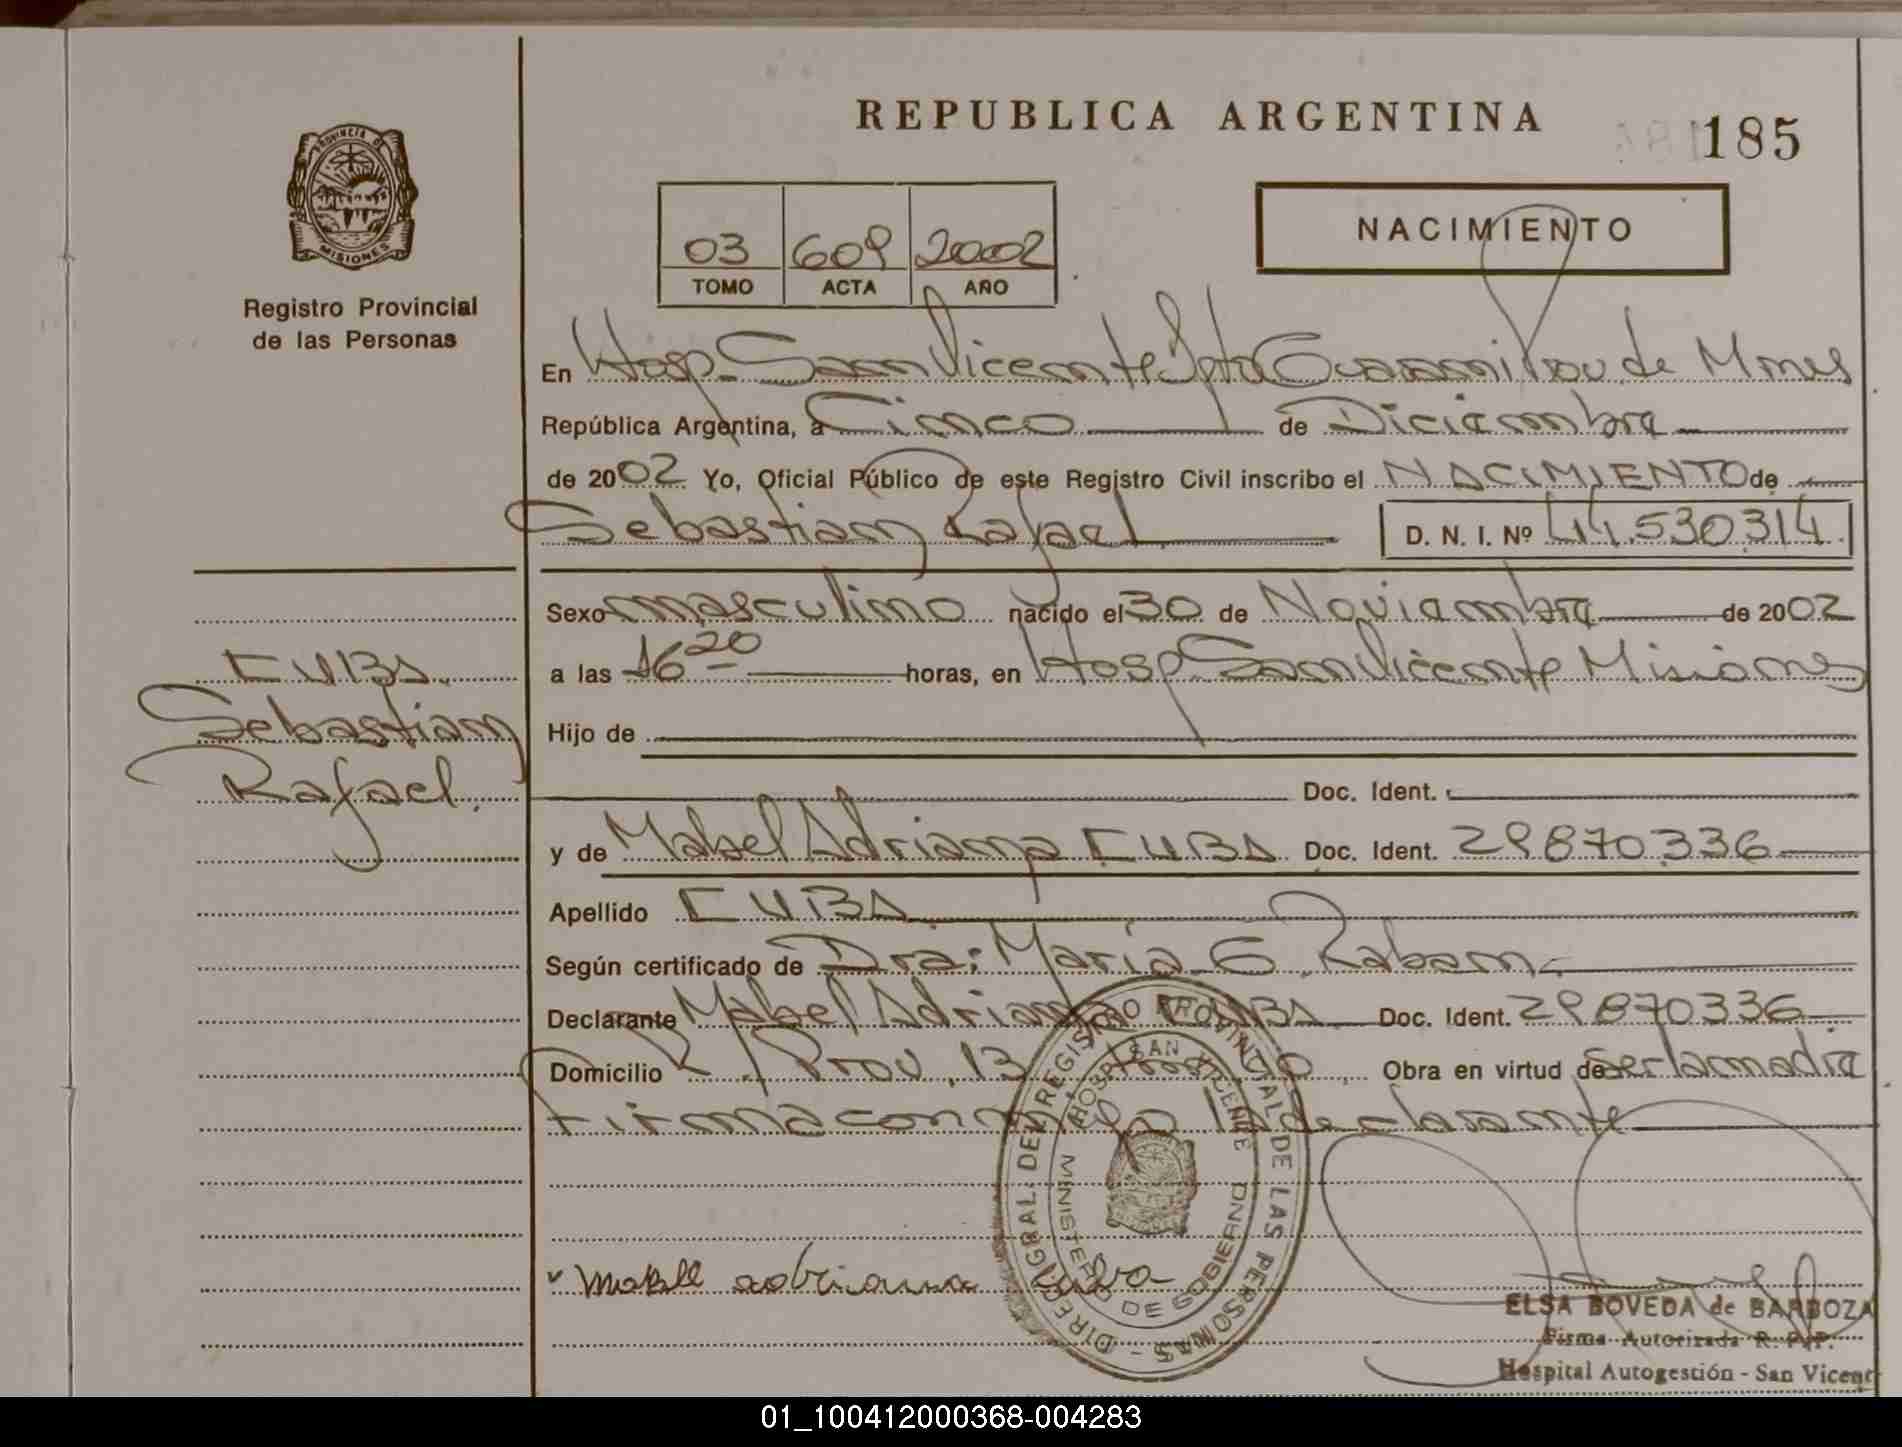 REPUBLICA ARGENTINA
185
PROVINCIA DE
MISIONES
Registro Provincial
de las Personas
03 609 2002
TOMO ACTA AÑO
NACIMIENTO
En Hosp. San Vicente Dpto Guarani Prov de Mnes
República Argentina, a Cinco de Diciembre
de 2002 Yo, Oficial Público de este Registro Civil inscribo el NACIMIENTO de
Sebastian Rafael D. N. I. Nº 44.530.314
Sexo masculino nacido el 30 de Noviembre de 2002
a las 16 20 horas, en Hosp San Vicente Misiones
Hijo de
Doc. Ident.
y de Mabel Adriana CUBA Doc. Ident. 29.870.336
Apellido CUBA
Según certificado de Dra: Maria G. Raban
Declarante Mabel Adriana CUBA Doc. Ident. 29.870.336
Domicilio R/Prov. 13 Obra en virtud de ser la madre
Firma conmigo la declarante
CUBA
Sebastian
Rafael
DIREC. GRAL. DEL REGISTRO PROVINCIAL DE LAS PERSONAS -
HOSPITAL SAN VICENTE
MINISTERIO DE GOBIERNO
Mabel adriana cuba
ELSA BOVEDA de BARBOZA
Firma Autorizada R. P. P.
Hospital Autogestión - San Vicent
01_100412000368-004283